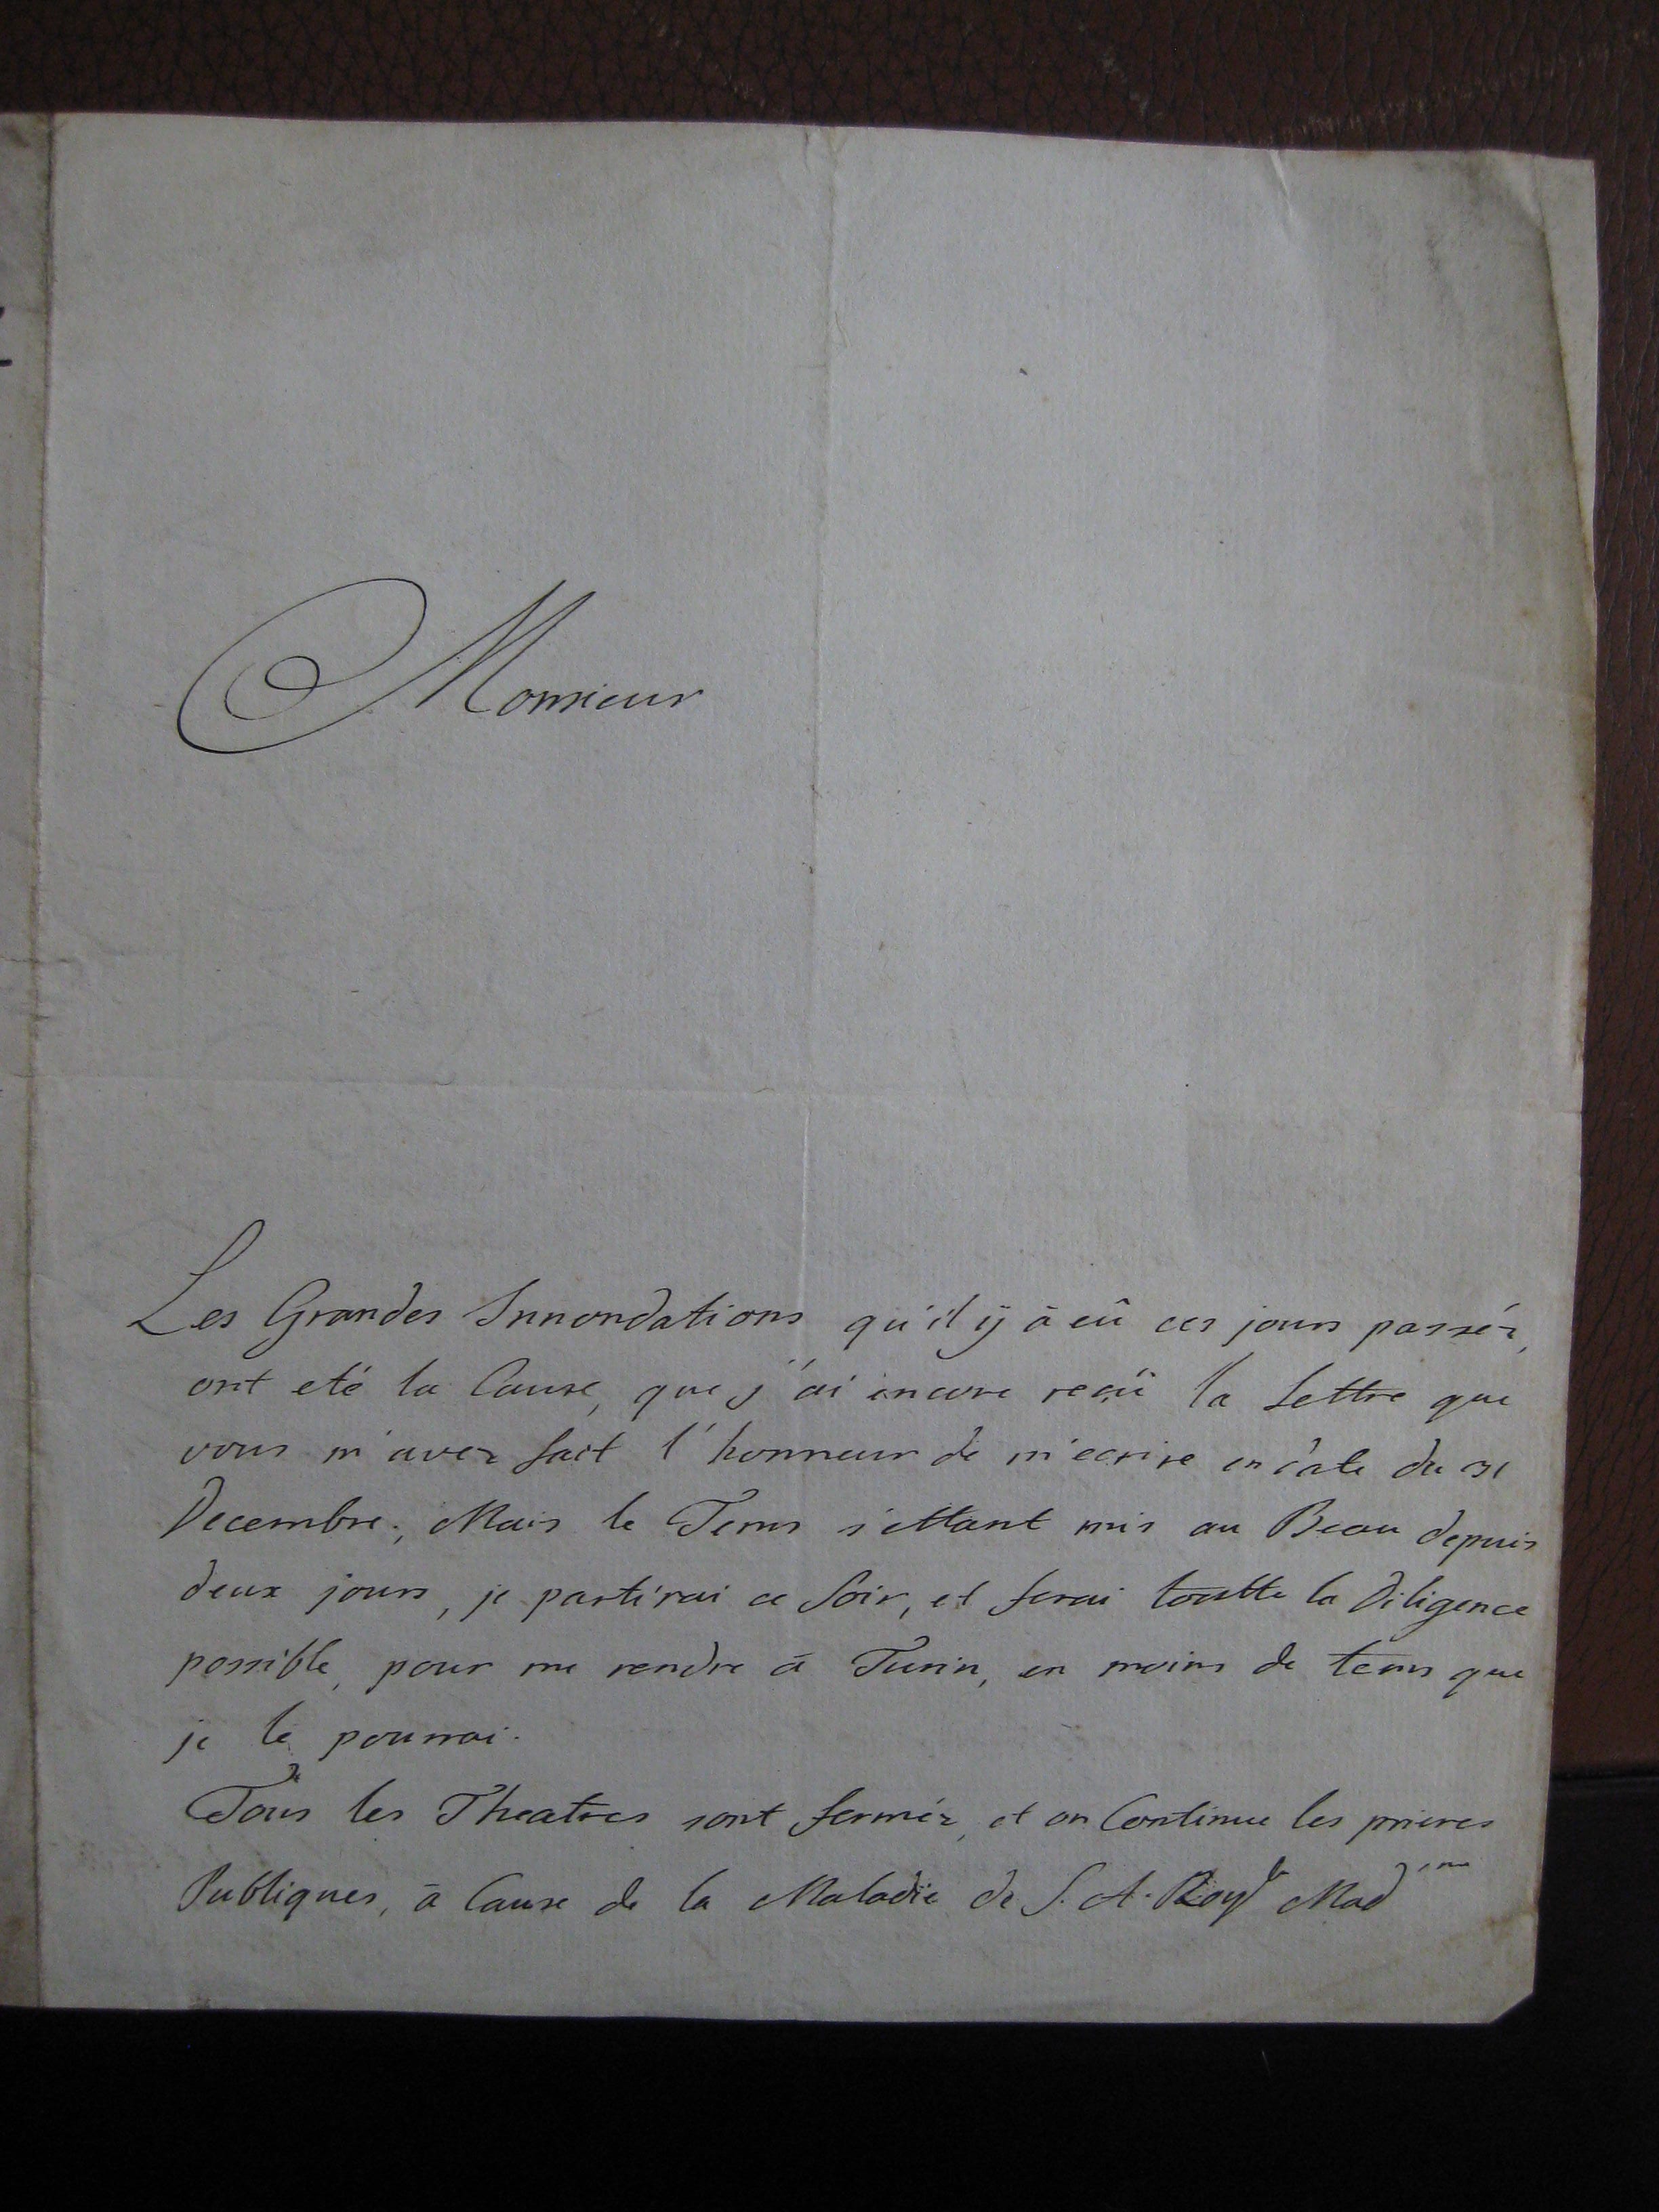 Monsieur
Les Grandes Innondations qu'il ÿ à eû ces jours passéz,
ont eté la Cause, que j'ai encore reçû la Lettre que
vous m'avez fait l'honneur de m'ecrire en date du 31
Decembre; Mais le Tems s'ettant mis au Beau depuis
deux jours, je partirai ce Soir, et ferai toutte la Diligence
possible, pour me rendre à Turin, en moins de tems que
je le pourrai.
Tous les Theatres sont fermèz, et on Continue les prieres
Publiques, à Cause de la Maladie de S. A. Roy.le Mad.me